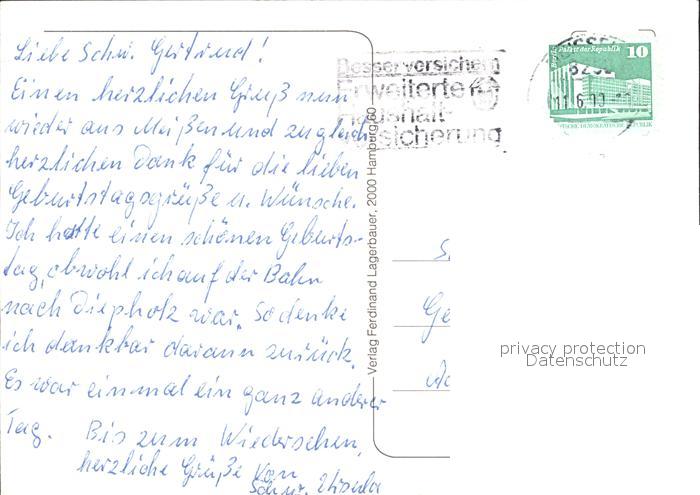 Liebe Schw. Gertrud!
Einen herzlichen Gruß nun
wieder aus Meißen und zugleich
herzlichen Dank für die lieben
Geburtstagsgrüße u. Wünsche.
Ich hatte einen schönen Geburts-
tag, obwohl ich auf der Bahn
nach Diepholz war. So denke
ich dankbar daran zurück.
Es war einmal ein ganz anderer
Tag. Bis zum Wiedersehen,
herzliche Grüße von
Schw. Ursula
Verlag Ferdinand Lagerbauer, 2000 Hamburg 60
Besser versichern
Erweiterte
Haushalt-
versicherung
Berlin, Palast der Republik
10
DEUTSCHE DEMOKRATISCHE REPUBLIK
11.6.90
S.
Ge
privacy protection
Datenschutz